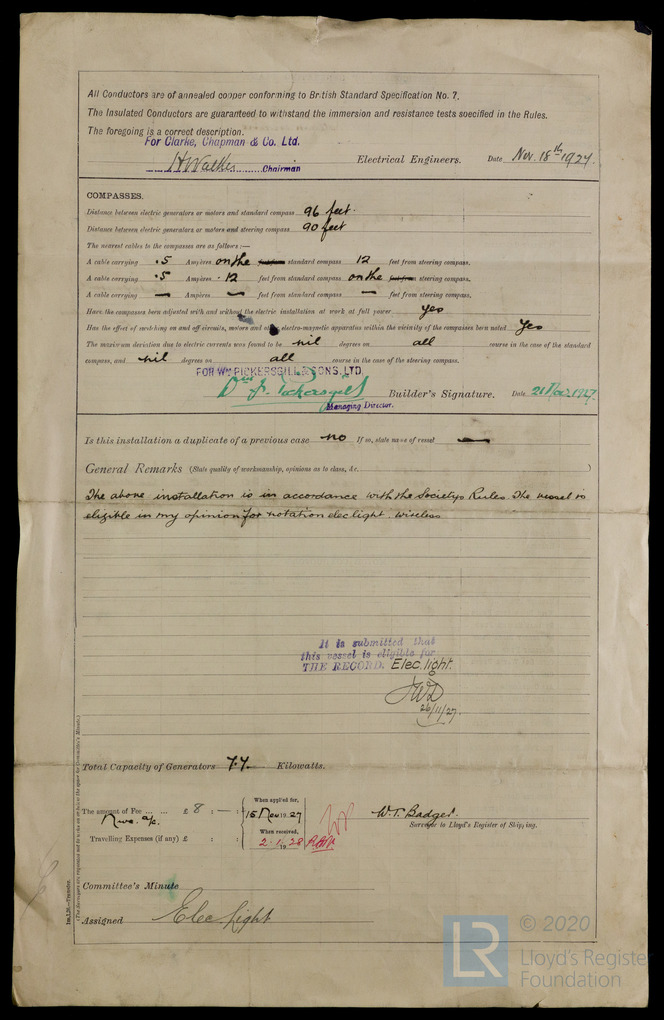 All Conductors are of annealed copper conforming to British Standard Specification No. 7.
The Insulated Conductors are guaranteed to withstand the immersion and resistance tests specified in the Rules.
The foregoing is a correct description.
For Clarke, Chapman & Co. Ltd.
H Walker Chairman Electrical Engineers. Date Nov. 18th 1927.
COMPASSES.
Distance between electric generators or motors and standard compass 96 feet.
Distance between electric generators or motors and steering compass 90 feet
The nearest cables to the compasses are as follows:—
A cable carrying .5 Ampères on the feet from standard compass 12 feet from steering compass.
A cable carrying .5 Ampères 12 feet from standard compass on the feet from steering compass.
A cable carrying — Ampères — feet from standard compass — feet from steering compass.
Have the compasses been adjusted with and without the electric installation at work at full power yes
Has the effect of switching on and off circuits, motors and other electro-magnetic apparatus within the vicinity of the compasses been noted yes
The maximum deviation due to electric currents was found to be nil degrees on all course in the case of the standard
compass, and nil degrees on all course in the case of the steering compass.
FOR WM PICKERSGILL & SONS, LTD.
Pickersgill Builder's Signature. Date 21 Nov. 1927
Managing Director.
Is this installation a duplicate of a previous case no If so, state name of vessel —
General Remarks (State quality of workmanship, opinions as to class, &c.)
The above installation is in accordance with the Societys Rules. The vessel is
eligible in my opinion for notation elec light. wireless
It is submitted that
this vessel is eligible for
THE RECORD. Elec. light.
JWD
26/11/27.
Total Capacity of Generators 7.7 Kilowatts.
The amount of Fee ... ... £ 8 : — :
When applied for,
15 Nov 1927
Travelling Expenses (if any) £ : :
When received,
2.1.1928
W.T. Badger.
Surveyor to Lloyd's Register of Shipping.
Committee's Minute
Assigned Elec Light
Im.1.26.—Transfer.
(The Surveyors are requested not to write on or below the space for Committee's Minute.)
© 2020
LR Lloyd's Register
Foundation